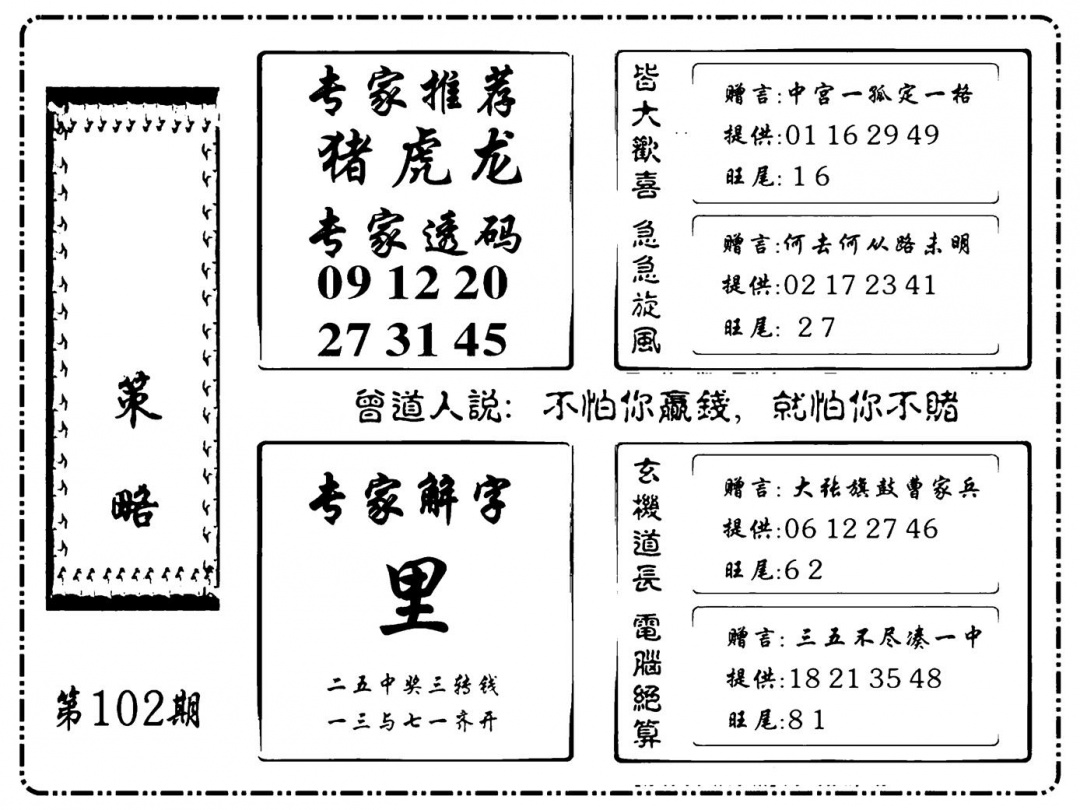 策略
第102期
专家推荐
猪虎龙
专家透码
09 12 20
27 31 45
皆大歡喜
赠言:中宫一孤定一格
提供:01 16 29 49
旺尾: 1 6
急急旋風
赠言:何去何从路未明
提供:02 17 23 41
旺尾: 2 7
曾道人説: 不怕你贏錢, 就怕你不賭
专家解字
里
二五中奖三转钱
一三与七一齐开
玄機道長
赠言: 大张旗鼓曹家兵
提供:06 12 27 46
旺尾:6 2
電腦絕算
赠言: 三五不尽凑一中
提供:18 21 35 48
旺尾:8 1